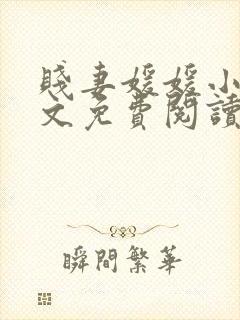 賤妻媛媛小
文免費閱讀
瞬間繁華